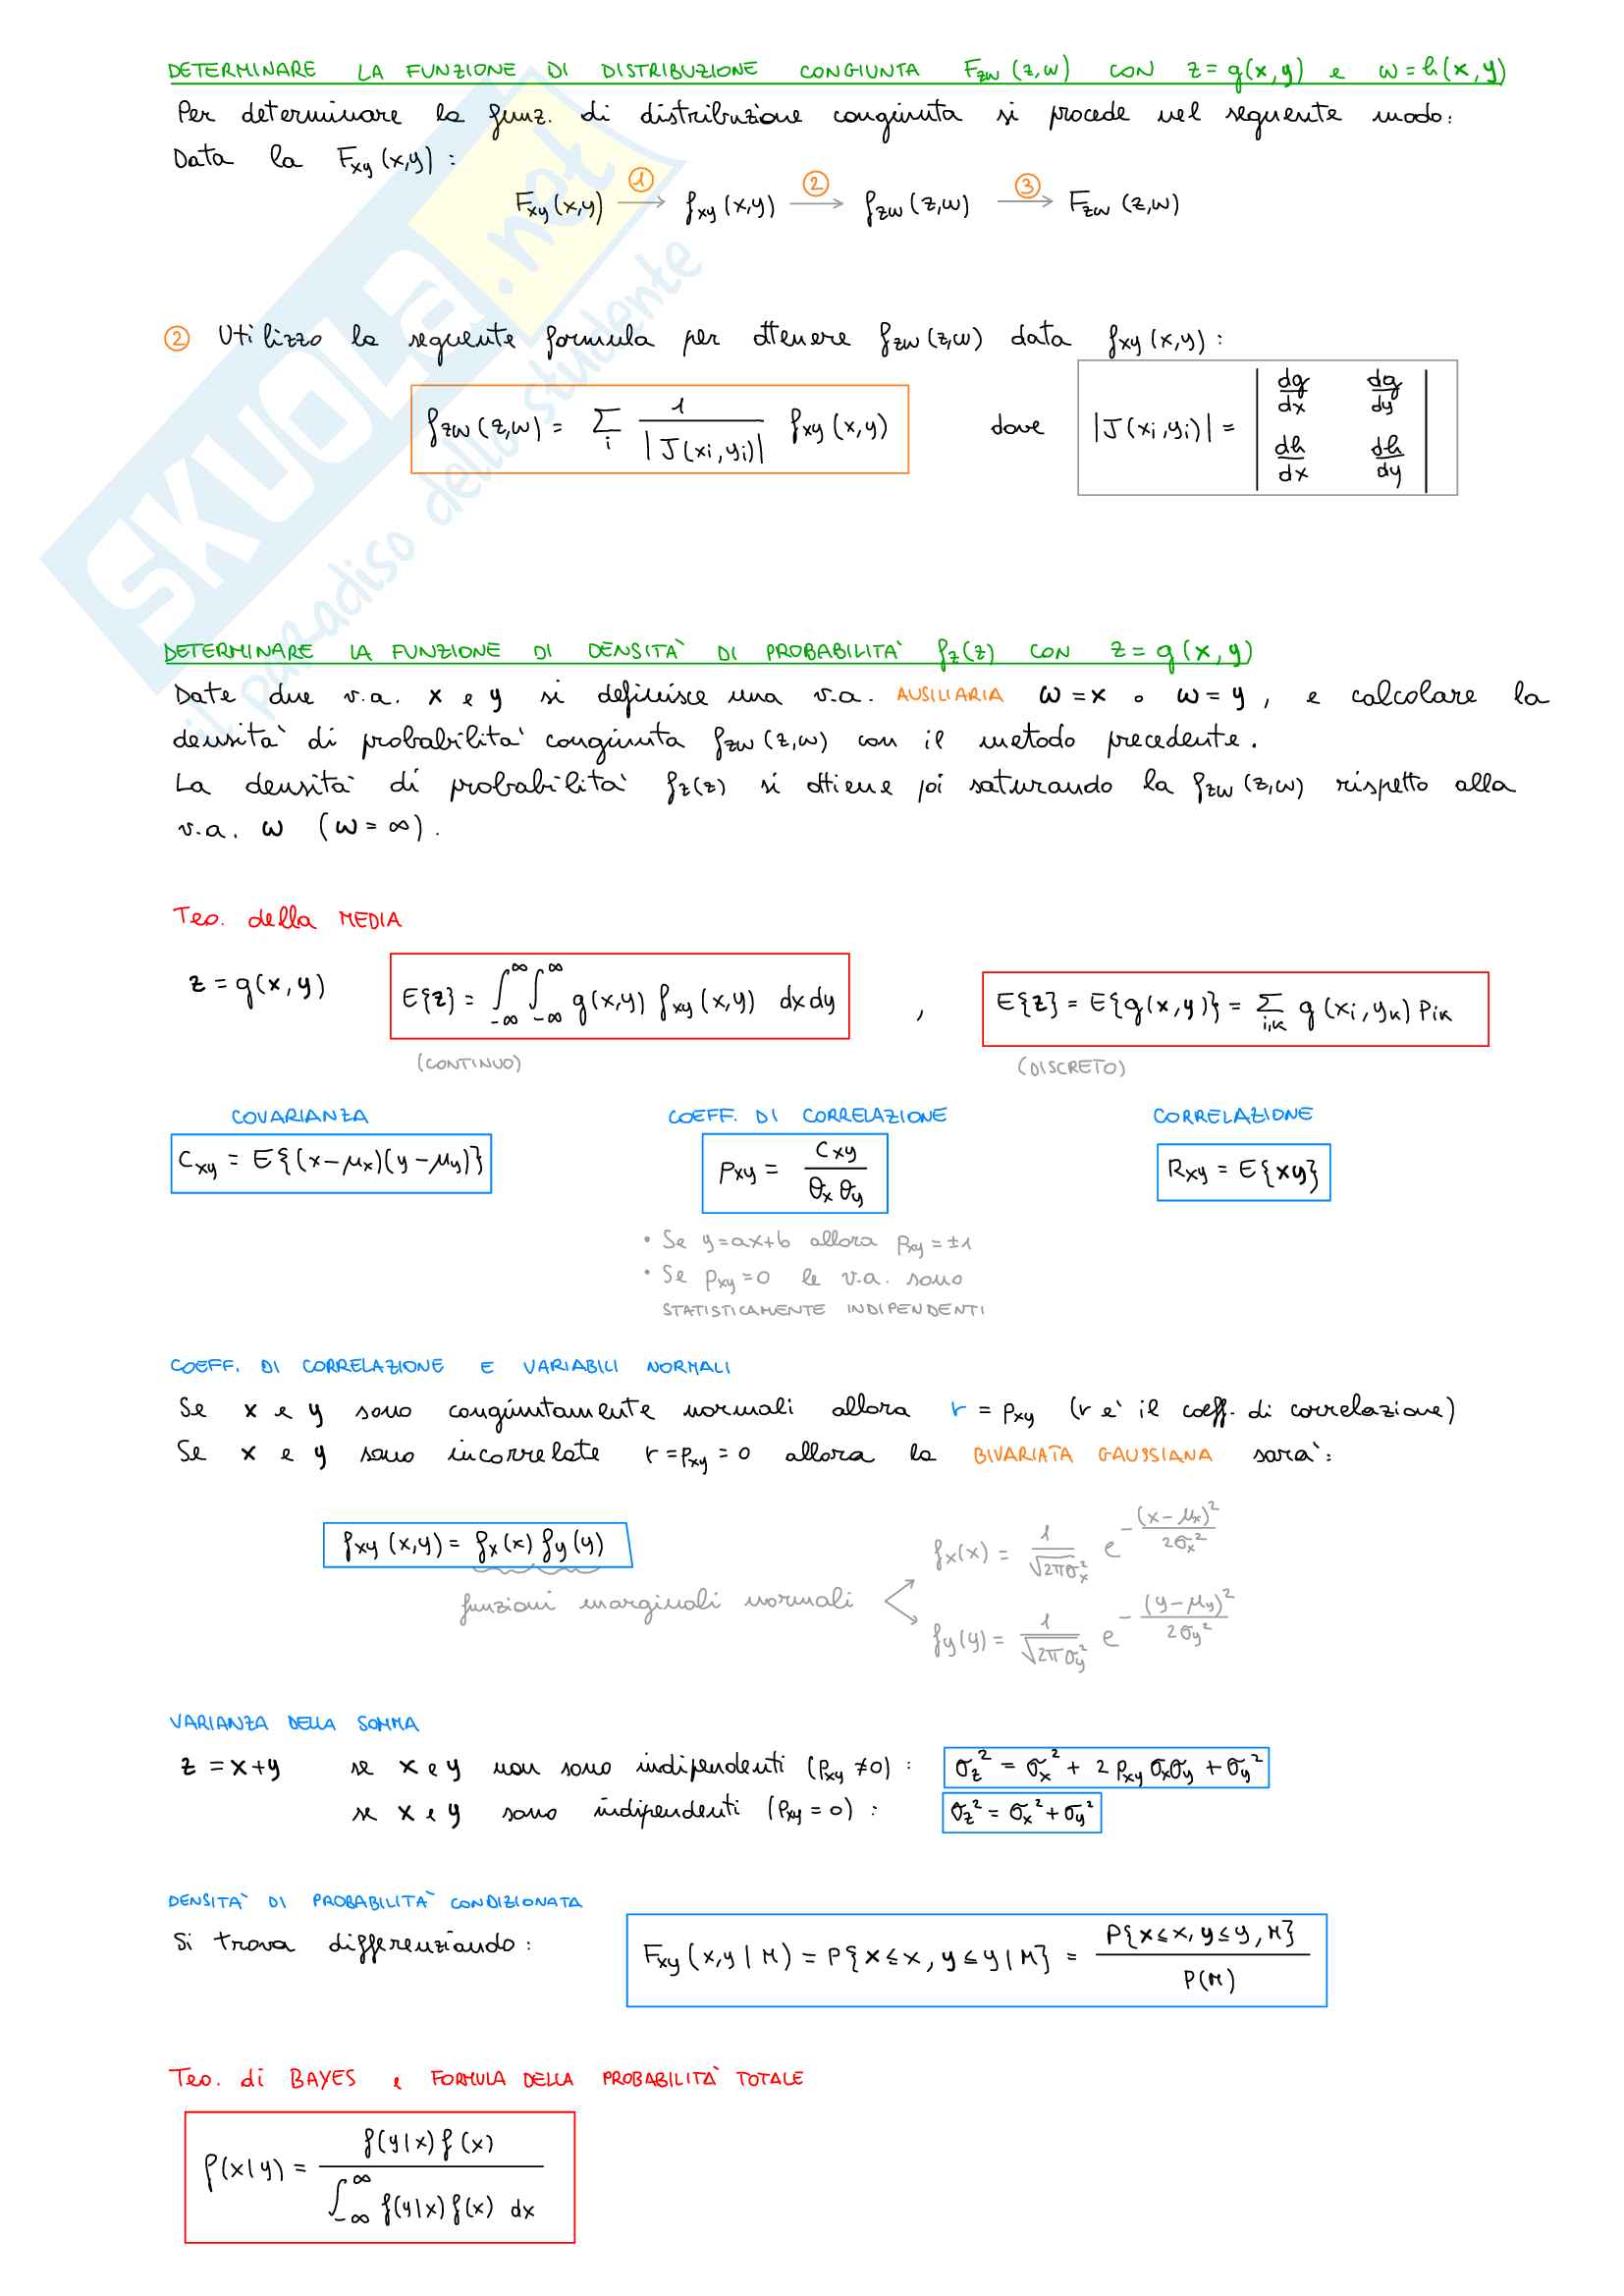 DETERMINARE LA FUNZIONE DI DISTRIBUZIONE CONGIUNTA Fzw (z,w) CON z = g(x,y) e w = h(x,y)
Per determinare la funz. di distribuzione congiunta si procede nel seguente modo:
Data la Fxy (x,y) :
Fxy (x,y) ①→ fxy (x,y) ②→ fzw (z,w) ③→ Fzw (z,w)
② Utilizzo la seguente formula per ottenere fzw (z,w) data fxy (x,y) :
fzw (z,w) = Σi 1/|J(xi,yi)| fxy (x,y) dove |J(xi,yi)| = | dg/dx dg/dy ; dh/dx dh/dy |
DETERMINARE LA FUNZIONE DI DENSITA' DI PROBABILITA' fz(z) CON z = g(x,y)
Date due v.a. x e y si definisce una v.a. AUSILIARIA w = x o w = y , e calcolare la
densita' di probabilita' congiunta fzw (z,w) con il metodo precedente.
La densita' di probabilita' fz(z) si ottiene poi saturando la fzw (z,w) rispetto alla
v.a. w (w = ∞) .
Teo. della MEDIA
z = g(x,y) E{z} = ∫-∞^∞ ∫-∞^∞ g(x,y) fxy (x,y) dx dy , E{z} = E{g(x,y)} = Σi,k g (xi,yk) pik
(CONTINUO) (DISCRETO)
COVARIANZA COEFF. DI CORRELAZIONE CORRELAZIONE
Cxy = E{(x-μx)(y-μy)} ρxy = Cxy / θx θy Rxy = E{xy}
• Se y=ax+b allora ρxy = ±1
• Se ρxy = 0 le v.a. sono
STATISTICAMENTE INDIPENDENTI
COEFF. DI CORRELAZIONE E VARIABILI NORMALI
Se x e y sono congiuntamente normali allora r = ρxy (r e' il coeff. di correlazione)
Se x e y sono incorrelate r = ρxy = 0 allora la BIVARIATA GAUSSIANA sara' :
fxy (x,y) = fx(x) fy(y) fx(x) = 1/√2πσx² e^-(x-μx)²/2σx²
funzioni marginali normali
fy(y) = 1/√2πσy² e^-(y-μy)²/2σy²
VARIANZA DELLA SOMMA
z = x+y se x e y non sono indipendenti (ρxy ≠ 0) : σz² = σx² + 2 ρxy σxσy + σy²
se x e y sono indipendenti (ρxy = 0) : σz² = σx² + σy²
DENSITA' DI PROBABILITA' CONDIZIONATA
Si trova differenziando : Fxy (x,y | M) = P{x ≤ x, y ≤ y | M} = P{x ≤ x, y ≤ y, M} / P(M)
Teo. di BAYES e FORMULA DELLA PROBABILITA' TOTALE
f(x|y) = f(y|x) f(x) / ∫-∞^∞ f(y|x) f(x) dx
SKUOLA.net
il paradiso dello studente